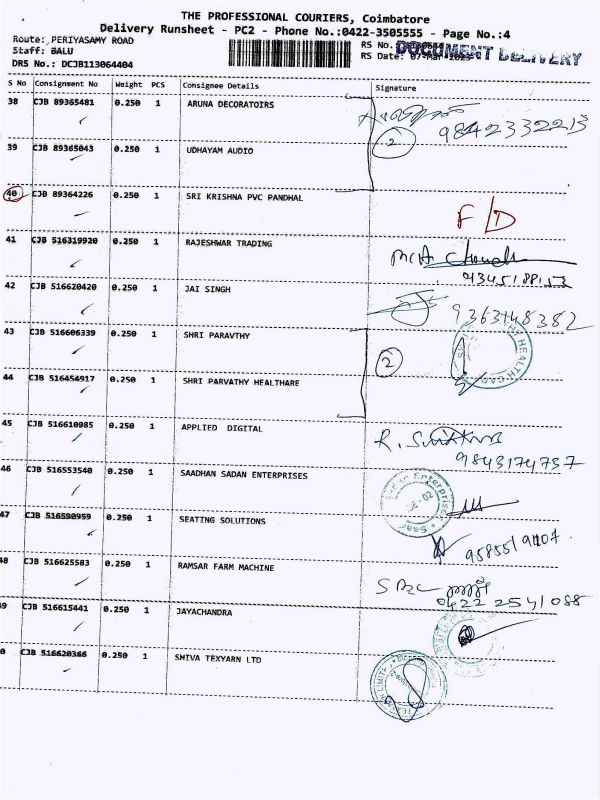 THE PROFESSIONAL COURIERS, Coimbatore
Delivery Runsheet - PC2 - Phone No.:0422-3505555 - Page No.:4
Route: PERIYASAMY ROAD
Staff: BALU
DRS No.: DCJB113064404
RS No.
RS Date: 07-Mar-
DOCUMENT DELIVERY
S No Consignment No Weight PCS Consignee Details Signature
38 CJB 89365481 0.250 1 ARUNA DECORATOIRS 9842332213
2
39 CJB 89365043 0.250 1 UDHAYAM AUDIO
40 CJB 89364226 0.250 1 SRI KRISHNA PVC PANDHAL F/D
41 CJB 516319920 0.250 1 RAJESHWAR TRADING
42 CJB 516620420 0.250 1 JAI SINGH 9363148382
43 CJB 516606339 0.250 1 SHRI PARAVTHY 2
44 CJB 516454917 0.250 1 SHRI PARVATHY HEALTHARE
45 CJB 516610985 0.250 1 APPLIED DIGITAL
9843174757
46 CJB 516553540 0.250 1 SAADHAN SADAN ENTERPRISES
47 CJB 516590959 0.250 1 SEATING SOLUTIONS
48 CJB 516625583 0.250 1 RAMSAR FARM MACHINE
0422 2541088
49 CJB 516615441 0.250 1 JAYACHANDRA
0 CJB 516620366 0.250 1 SHIVA TEXYARN LTD